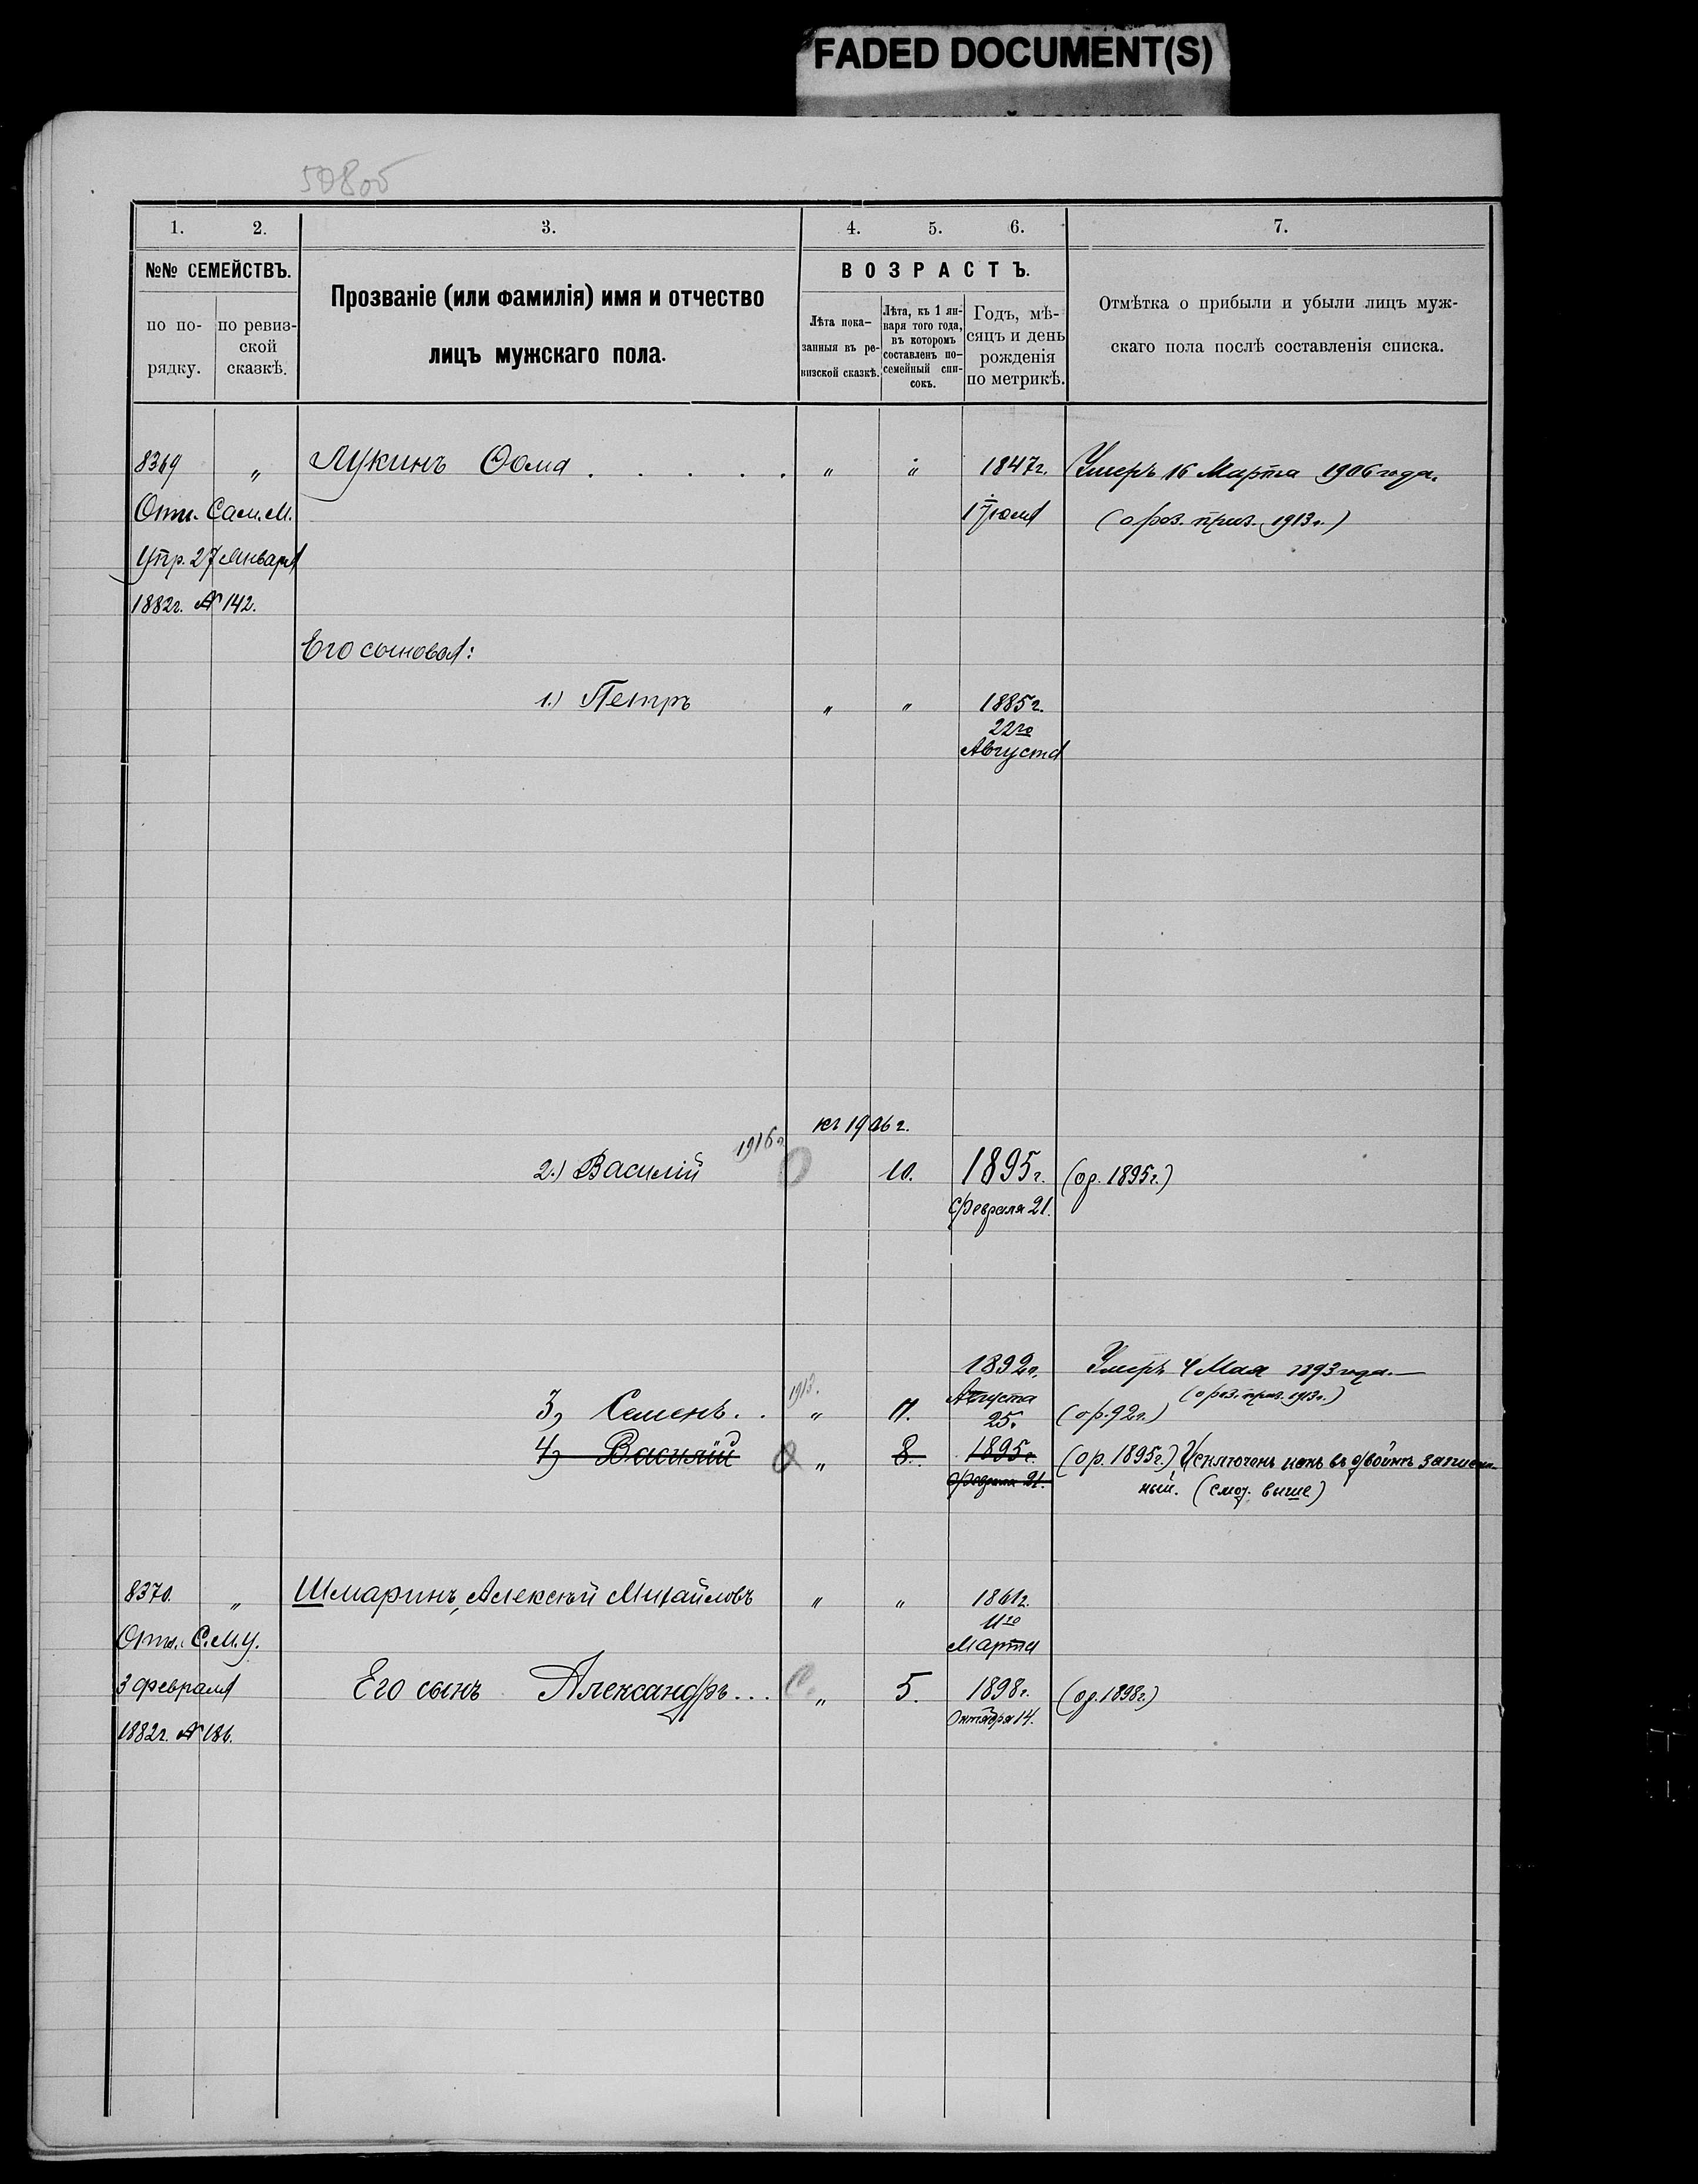 FADED DOCUMENT(S)
1. 2. 3. 4. 5. 6. 7.
№№ СЕМЕЙСТВЪ.
по по-
рядку.
по ревиз-
ской
сказкѣ.
Прозваніе (или фамилія) имя и отчество
лицъ мужскаго пола.
ВОЗРАСТЪ.
Лѣта пока-
занныя въ ре-
визской сказкѣ.
Лѣта, къ 1 ян-
варя того года,
въ которомъ
составленъ по-
семейный спи-
сокъ.
Годъ, мѣ-
сяцъ и день
рожденія
по метрикѣ.
Отмѣтка о прибыли и убыли лицъ муж-
скаго пола послѣ составленія списка.
8369 „ Лукинъ Ѳома . . . . . „ „ 1847г. Умеръ 16 Марта 1906 года.
Отн. Сам. М. (о роз. приз. 1913г.)
Упр. 27 Января
1882г. № 142.
Его сыновья:
1.) Петръ „ „ 1885г.
22го
Августа
къ 1906г.
1916г.
2.) Василій 10. 1895г. (ор. 1895г.)
Февраля 21.
1892г. Умеръ 4 Мая 1893 года.—
3, Семенъ . . 1913. „ 11. Августа (о роз. приз. 1913г.)
25. (ор. 92г.)
4, Василій „ 8. 1895г. (ор. 1895г.) Исключенъ какъ въ двойнѣ записан-
Февраля 21. ный. (смот. выше)
8370. „ Шмаринъ, Алексѣй Михайловъ „ „ 1861г.
11го
Отн. С.М.У. Марта
3 Февраля Его сынъ Александръ . . . „ 5. 1898г. (ор. 1898г.)
1882г. № 186. Октября 14.